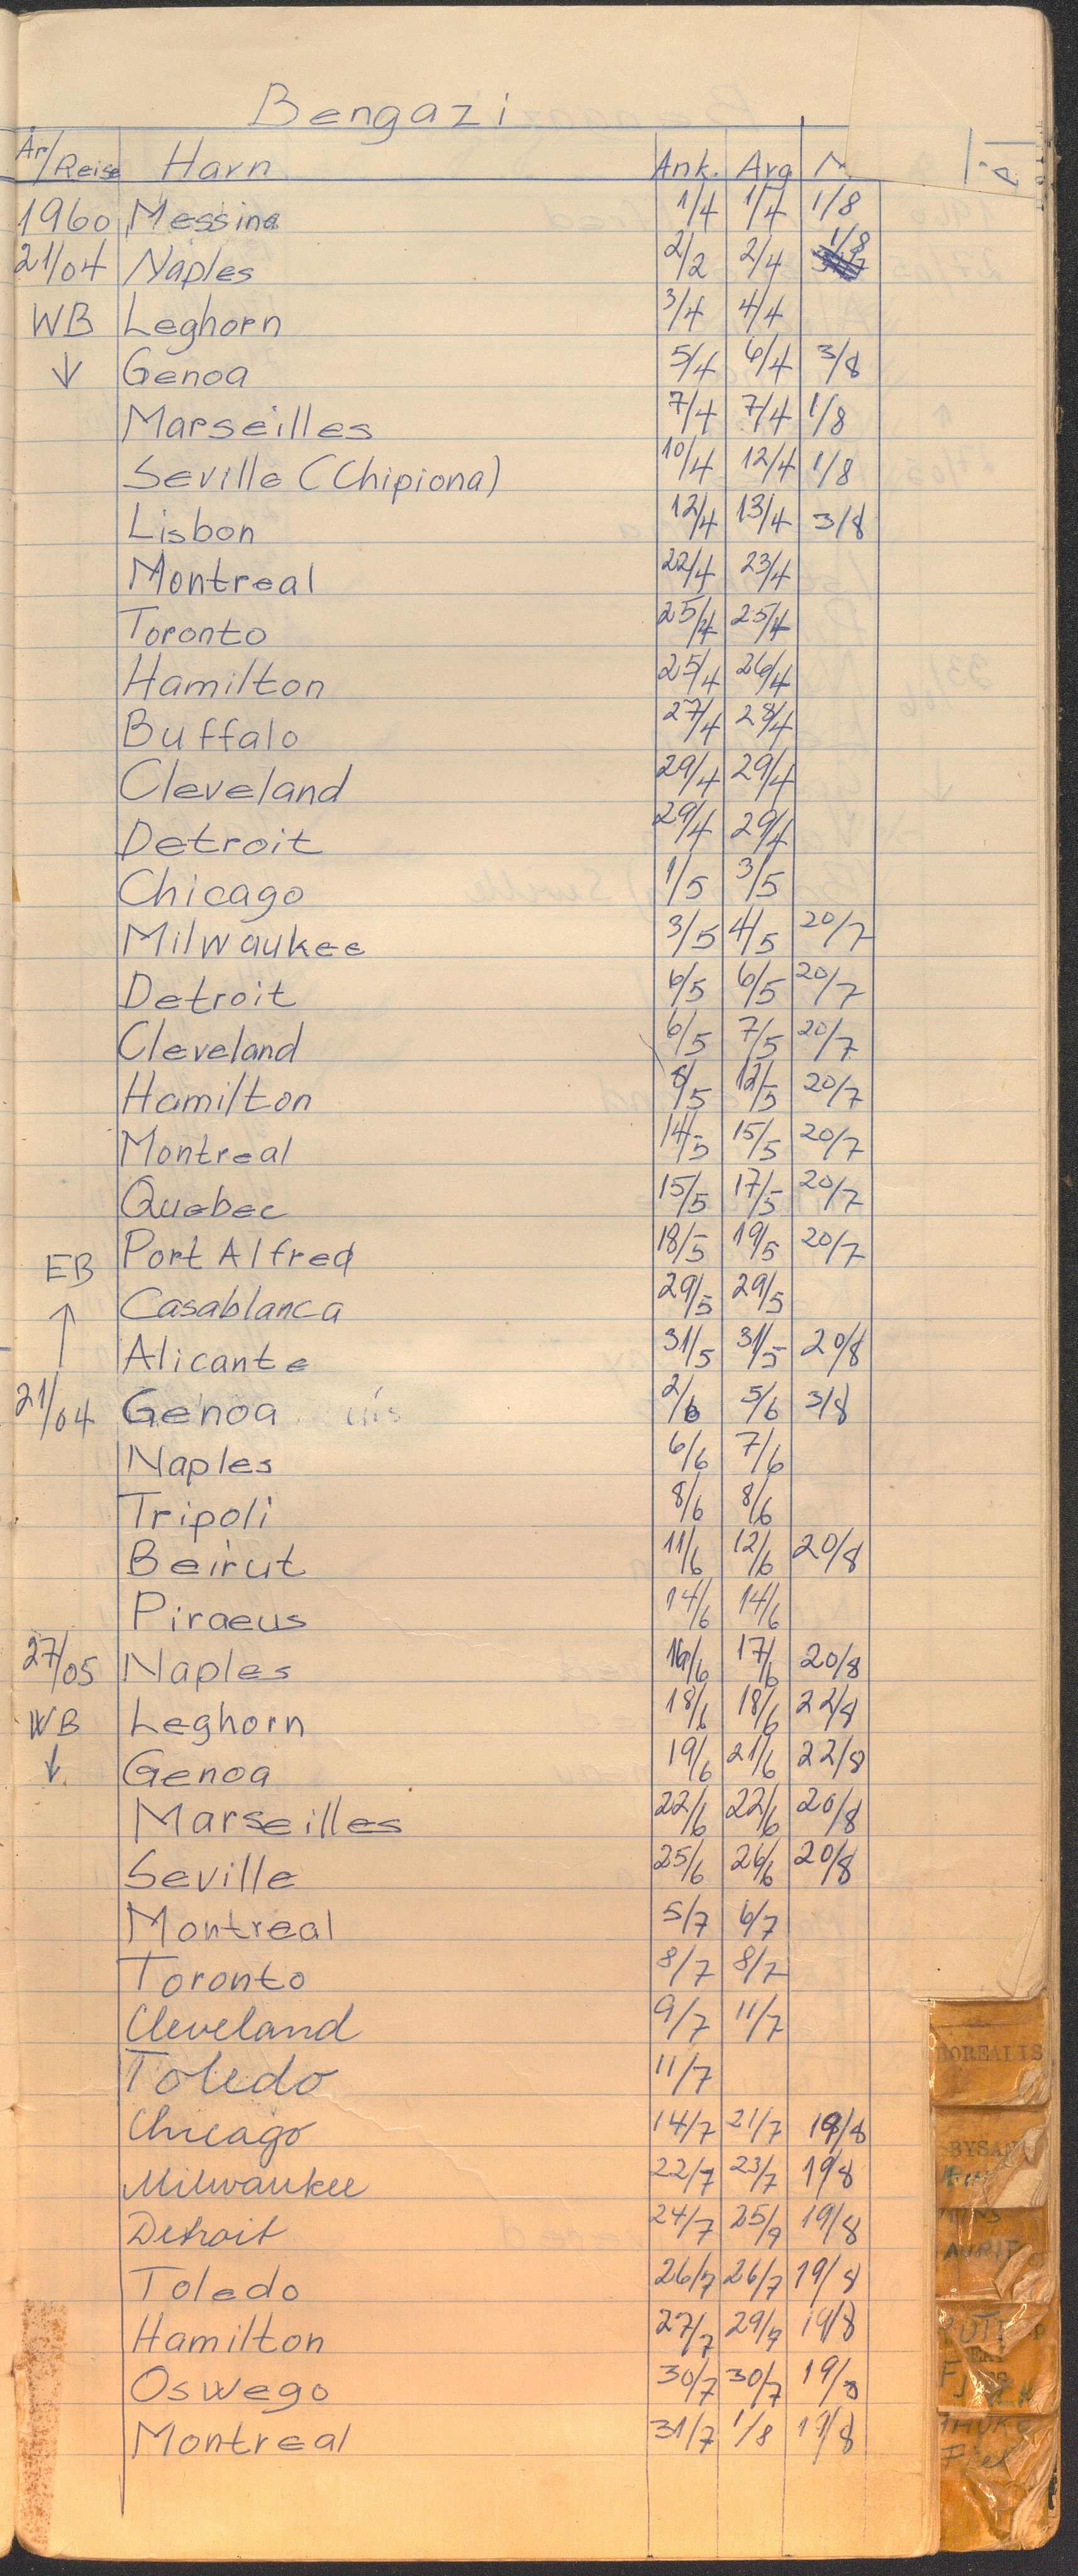 Bengazi
År/Reise Havn Ank. Avg
1960 Messina 1/4 1/4 1/8
21/04 Naples 2/2 2/4 1/8
WB Leghorn 3/4 4/4
↓ Genoa 5/4 6/4 3/8
Marseilles 7/4 7/4 1/8
Seville (Chipiona) 10/4 12/4 1/8
Lisbon 12/4 13/4 3/8
Montreal 22/4 23/4
Toronto 25/4 25/4
Hamilton 25/4 26/4
Buffalo 27/4 28/4
Cleveland 29/4 29/4
Detroit 29/4 29/4
Chicago 1/5 3/5
Milwaukee 3/5 4/5 20/7
Detroit 6/5 6/5 20/7
Cleveland 6/5 7/5 20/7
Hamilton 8/5 12/5 20/7
Montreal 14/5 15/5 20/7
Quebec 15/5 17/5 20/7
EB Port Alfred 18/5 19/5 20/7
↑ Casablanca 29/5 29/5
Alicante 31/5 31/5 20/8
21/04 Genoa 2/6 5/6 3/8
Naples 6/6 7/6
Tripoli 8/6 8/6
Beirut 11/6 12/6 20/8
Piraeus 14/6 14/6
27/05 Naples 16/6 17/6 20/8
WB Leghorn 18/6 18/6 22/8
↓ Genoa 19/6 21/6 22/8
Marseilles 22/6 22/6 20/8
Seville 25/6 26/6 20/8
Montreal 5/7 6/7
Toronto 8/7 8/7
Cleveland 9/7 11/7
Toledo 11/7
BOREALIS
Chicago 14/7 21/7 19/8
BYSAN
Milwaukee 22/7 23/7 19/8
Detroit 24/7 25/7 19/8
Toledo 26/7 26/7 19/8
Hamilton 27/7 29/7 19/8
Oswego 30/7 30/7 19/8
Montreal 31/7 1/8 19/8